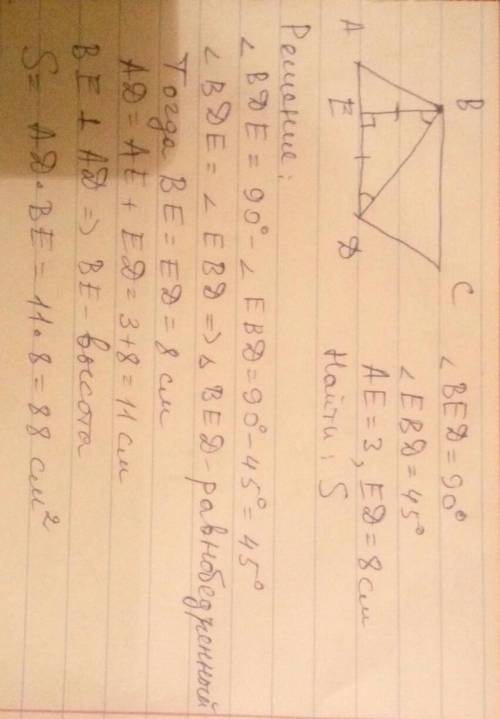 B C
A E D
∠BED = 90°
∠EBD = 45°
AE = 3, ED = 8 см
Найти: S
Решение:
∠BDE = 90° - ∠EBD = 90° - 45° = 45°
∠BDE = ∠EBD => △BED - равнобедренный
Тогда BE = ED = 8 см
AD = AE + ED = 3 + 8 = 11 см
BE ⊥ AD => BE - высота
S = AD · BE = 11 · 8 = 88 см²